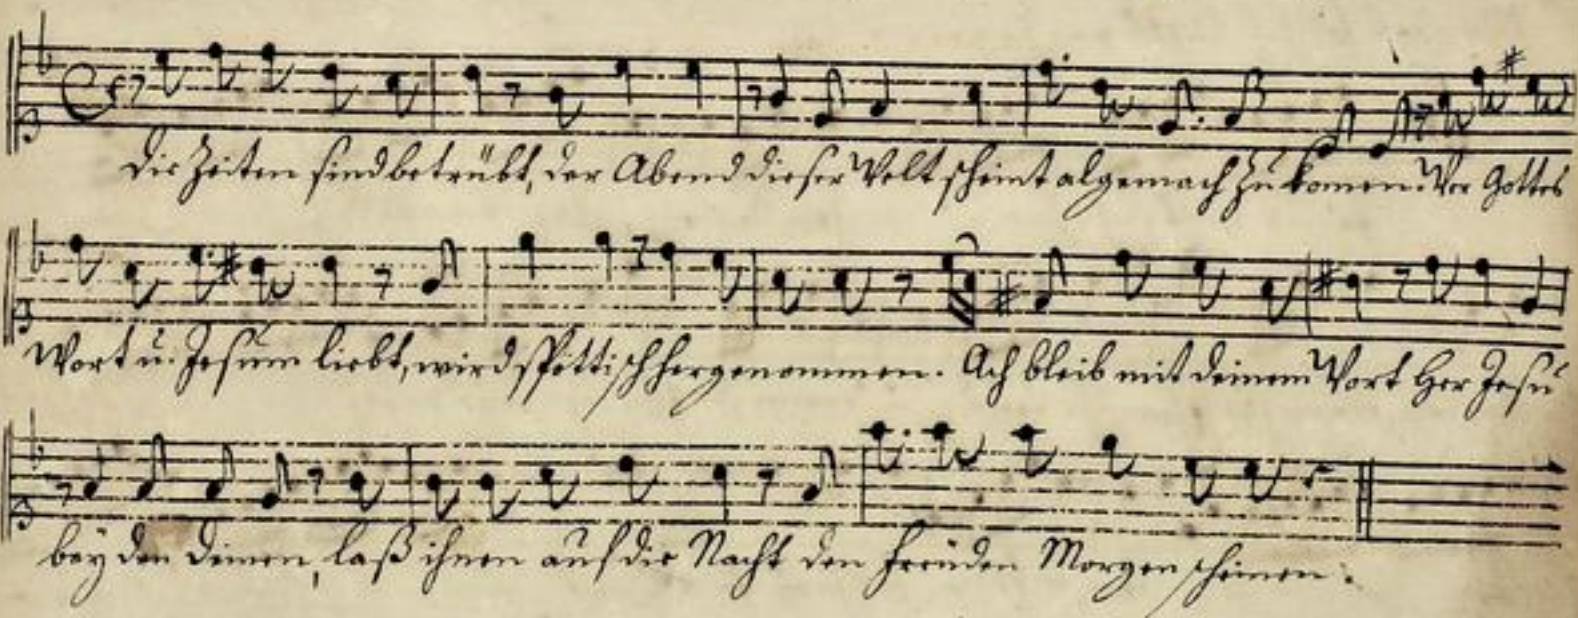 Die Zeiten sind betrübt, der Abend dieser Welt scheint algemach zu komen. Wer Gottes
Wort u. Jesum liebt, wird spöttisch hergenommen. Ach bleib mit deinem Wort Her Jesu
bey den deinen, laß ihnen auf die Nacht den Freuden Morgen scheinen.